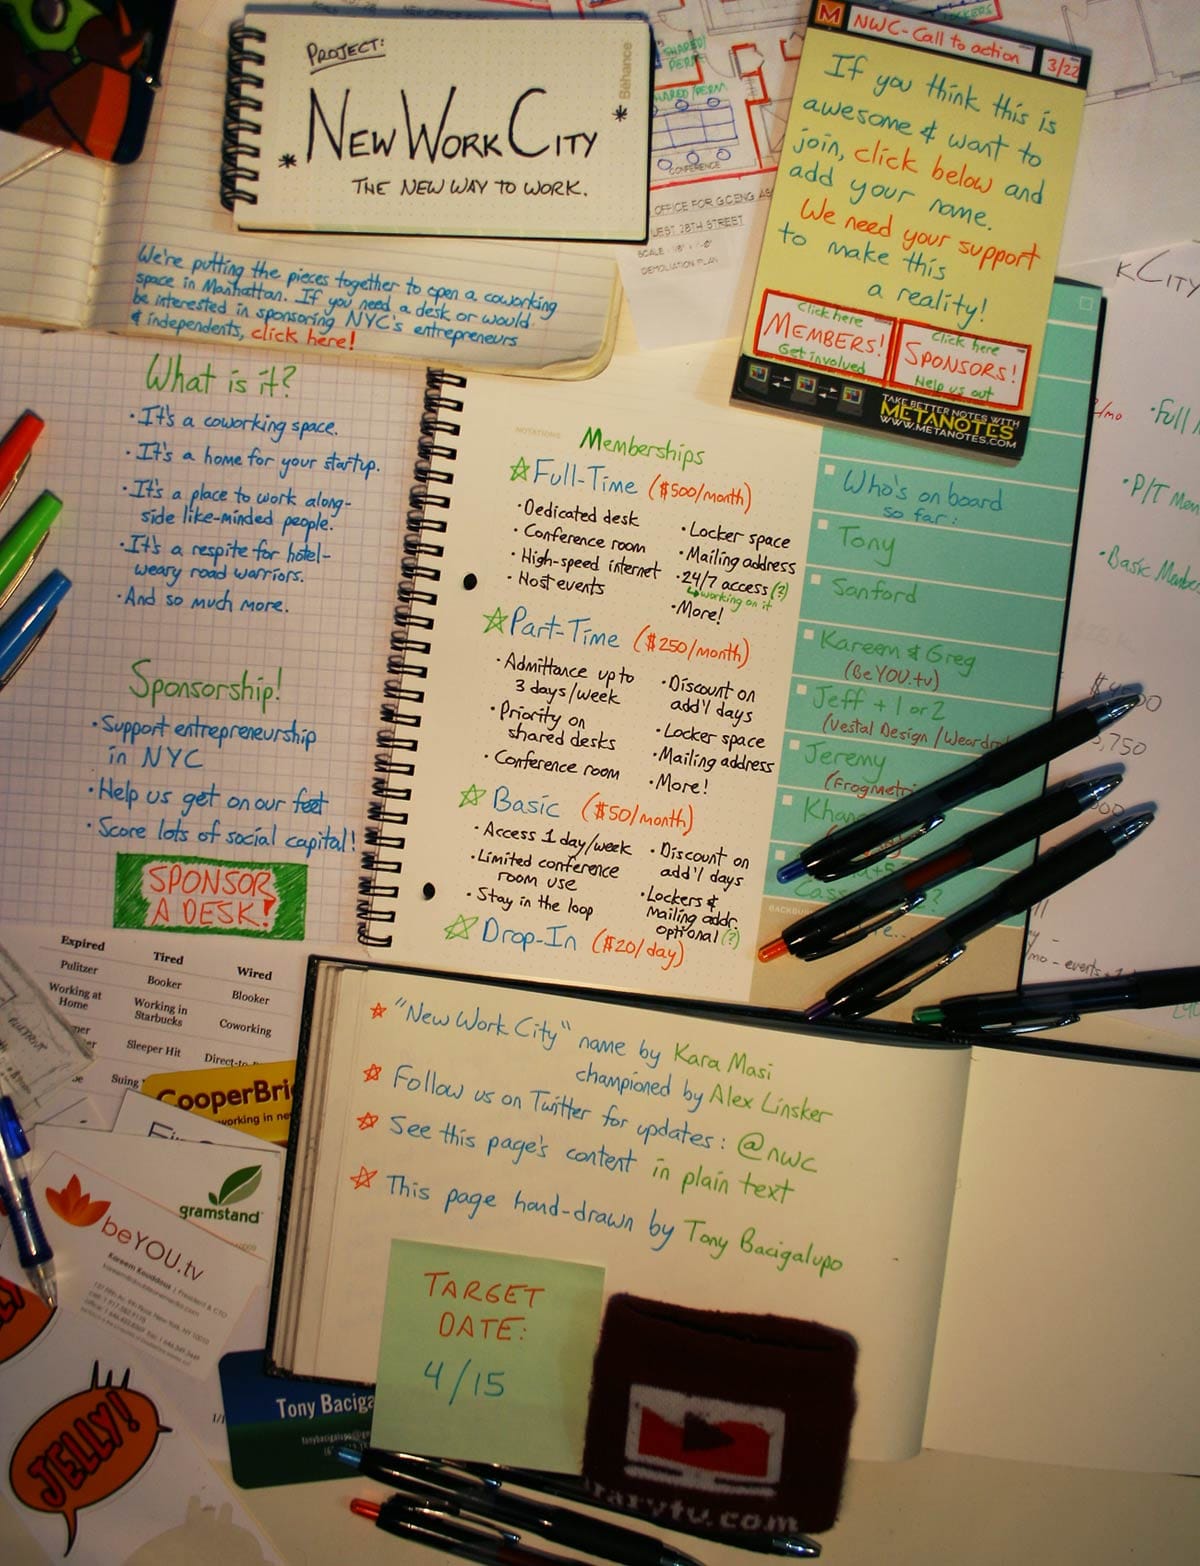 PROJECT:
* NEW WORK CITY *
THE NEW WAY TO WORK.
Behance
SHARED/
PERM
SHARED/PERM
CONFERENCE
LOCKERS
OFFICE FOR GCENG
WEST 28TH STREET
DEMOLIATION PLAN
M NWC-Call to action 3/22
If you think this is
awesome & want to
join, click below and
add your name.
We need your support
to make this
a reality!
Click here
MEMBERS!
Get involved
Click here
SPONSORS!
Help us out
TAKE BETTER NOTES WITH
METANOTES
WWW.METANOTES.COM
We're putting the pieces together to open a coworking
space in Manhattan. If you need a desk or would
be interested in sponsoring NYC's entrepreneurs
& independents, click here!
What is it?
· It's a coworking space.
· It's a home for your startup.
· It's a place to work along-
side like-minded people.
· It's a respite for hotel-
weary road warriors.
· And so much more.
Sponsorship!
· Support entrepreneurship
in NYC
· Help us get on our feet
· Score lots of social capital!
SPONSOR
A DESK!
NOTATIONS
Memberships
☆ Full-Time ($500/month)
· Dedicated desk
· Conference room
· High-speed internet
· Host events
· Locker space
· Mailing address
· 24/7 access (?)
↳ working on it
· More!
☆ Part-Time ($250/month)
· Admittance up to
3 days/week
· Priority on
shared desks
· Conference room
· Discount on
add'l days
· Locker space
· Mailing address
· More!
☆ Basic ($50/month)
· Access 1 day/week
· Limited conference
room use
· Stay in the loop
· Discount on
add'l days
· Lockers &
mailing addr.
optional (?)
☆ Drop-In ($20/day)
Who's on board
so far:
Tony
Sanford
Kareem & Greg
(BeYOU.tv)
Jeff + 1 or 2
(Vestal Design /
Jeremy
(Frogmetri
Khan
KCITY
/mo
· Full
· P/T Mem
· Basic Members
,750
/mo - events
Expired Tired Wired
Pulitzer Booker Blooker
Working at
Home
Working in
Starbucks
Coworking
Sleeper Hit Direct-to
Suing
CooperBri
working in ne
gramstand
beYOU.tv
Kareem Kouddous | President & CTO
JELLY!
Tony Baciga
☆ "New Work City" name by Kara Masi
championed by Alex Linsker
☆ Follow us on Twitter for updates: @nwc
☆ See this page's content in plain text
☆ This page hand-drawn by Tony Bacigalupo
TARGET
DATE:
4/15
rarytv.com